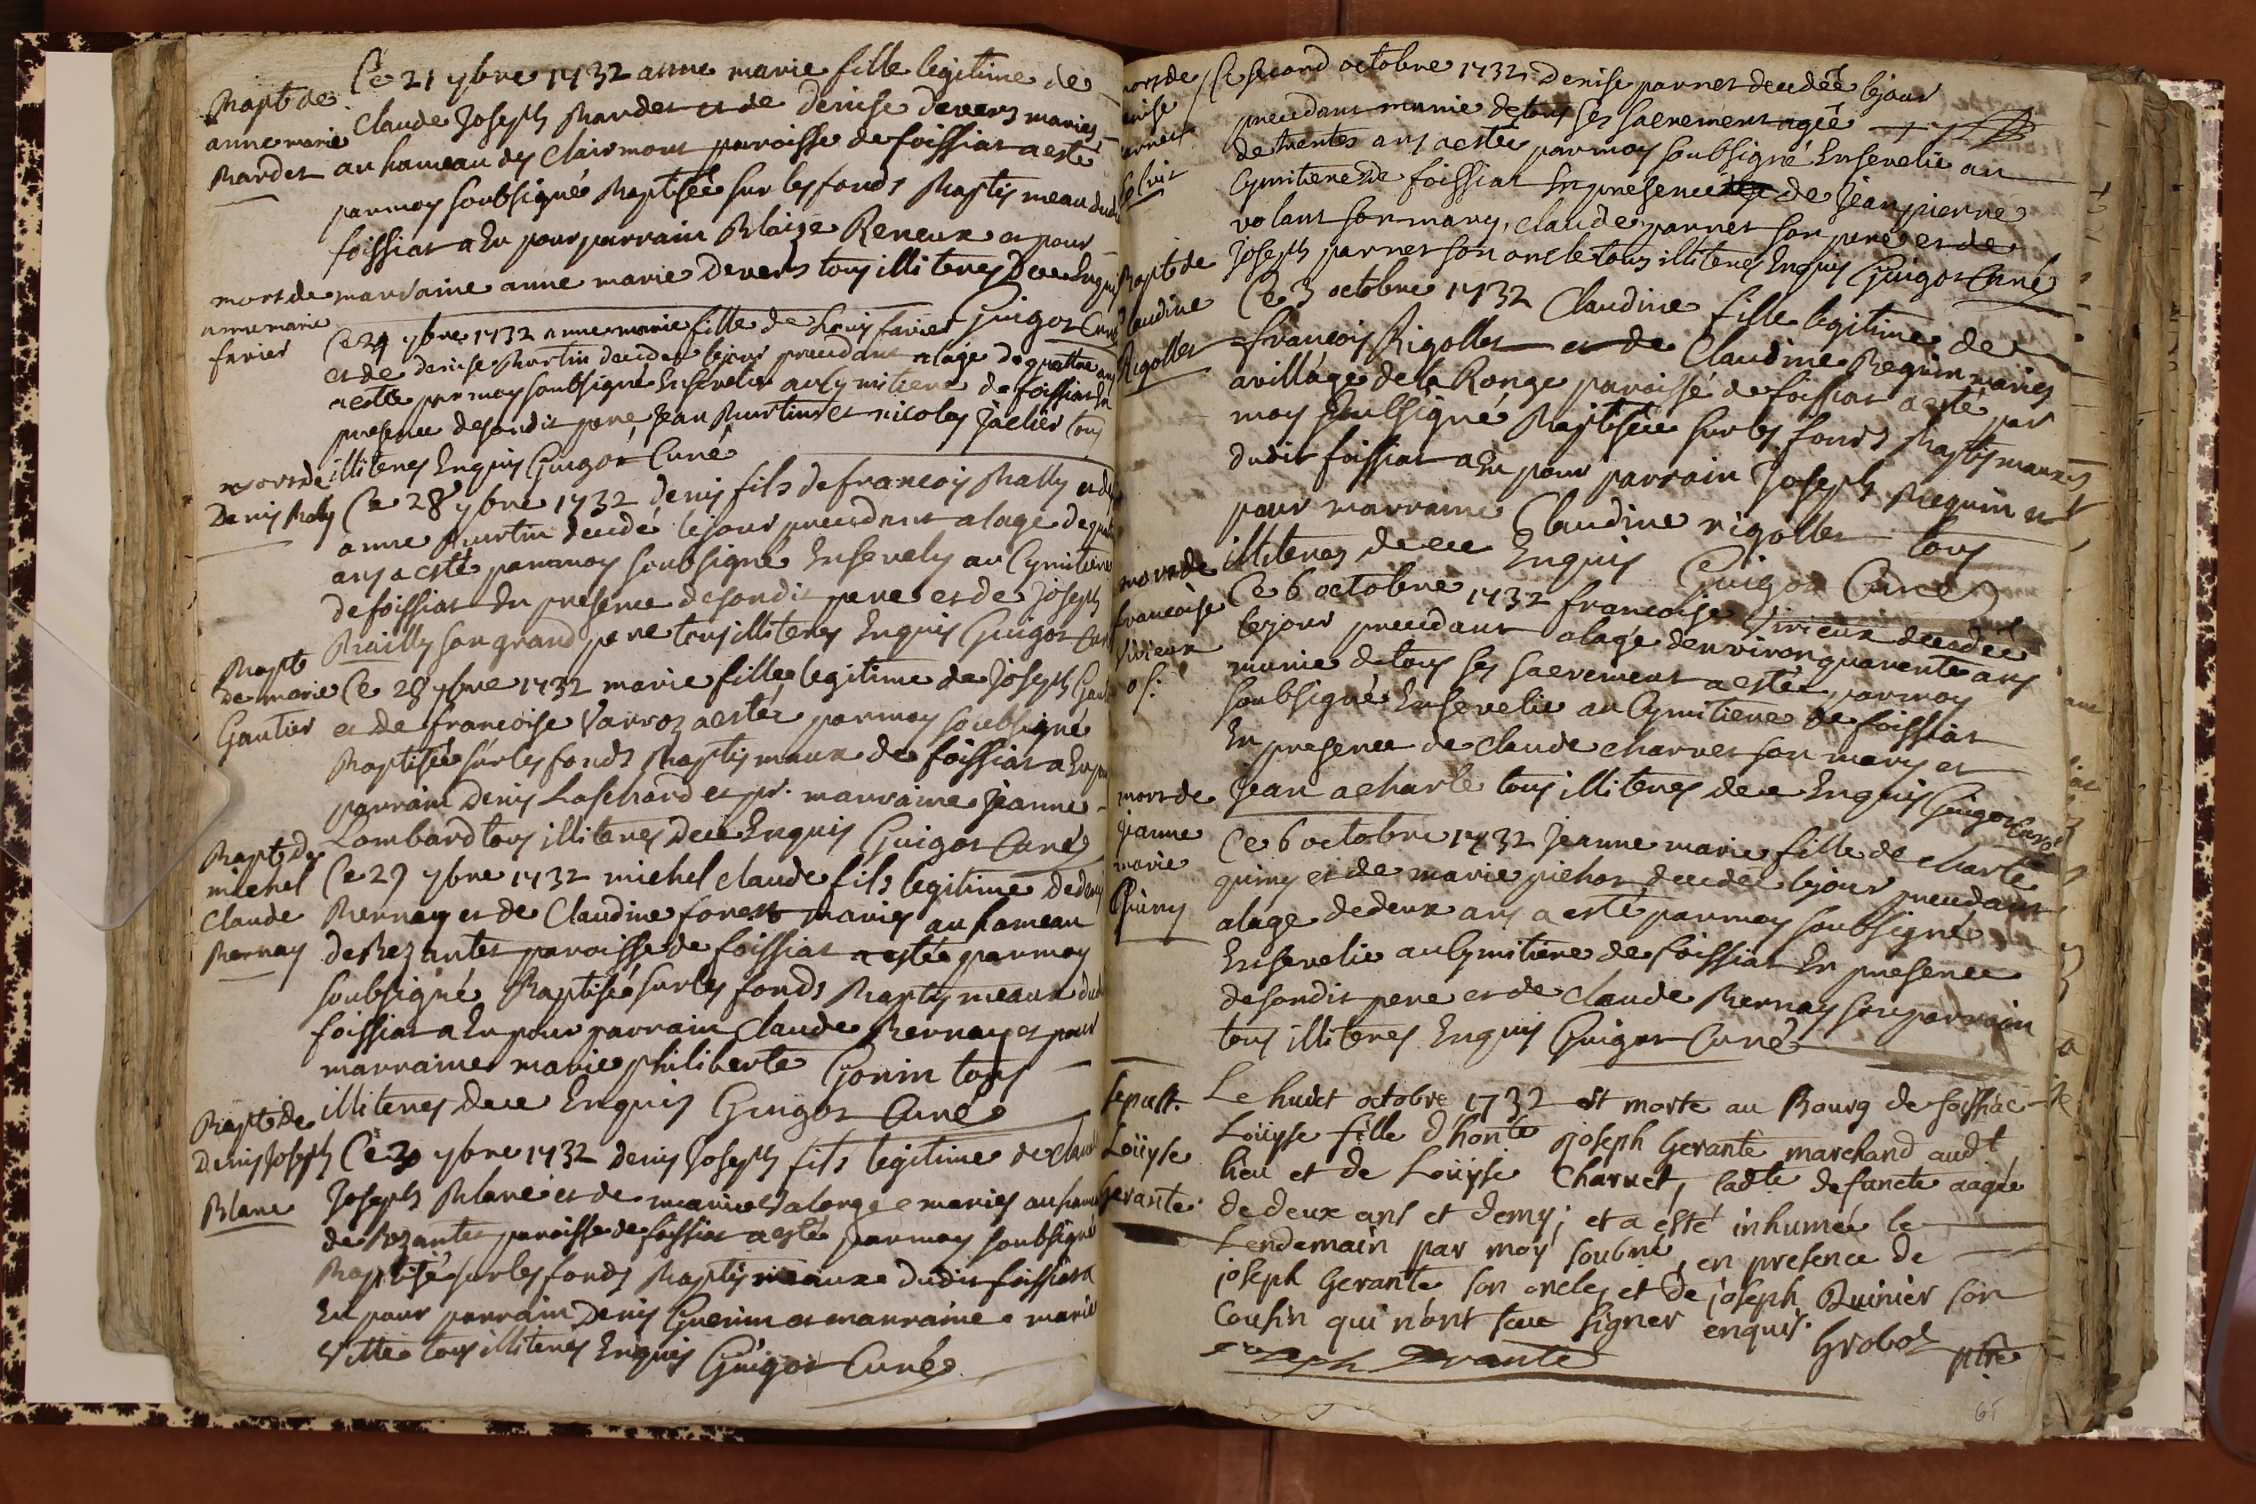 Bapt de
anne marie
Bardet
Ce 21 7bre 1732 anne marie fille legitime de
Claude Joseph Bardet et de denise devers mariés
au hameau des Clairmont paroisse de foissiat a esté
par moy soubsigné Baptisée sur les fonds Baptismeau dudit
foissiat a Eu pour parrain Blaize Reneux et pour
marraine anne marie devers tous illiteres de ce Enquis
Guigot Curé
mort de
anne marie
favier
Ce 24 7bre 1732 anne marie fille de Louis favier
et de denise Burtin decedée le jour precedant a lage de quattre ans
a esté par moy soubsigné Ensevelie au Cymitiere de foissiat En
presence de sondit pere Jean Burtin et nicolas Jaclier tous
illiteres Enquis Guigot Curé
mort de
Denis Bally
Ce 28 7bre 1732 denis fils de francois Bally et de
anne Burtin decedé le jour precedant a lage de
ans a esté par moy soubsigné Ensevely au Cymitiere
de foissiat En presence de sondit pere et de Joseph
Bailly son grand pere tous illiteres Enquis Guigot Curé
Bapt
de marie
Gautier
Ce 28 7bre 1732 marie fille legitime de Joseph
et de francoise Varroz a esté par moy soubsigné
Baptisée sur les fonds Baptismaux de foissiat a Eu pour
parrain Denis Laschard et pr. marraine Jeanne
Lombard tous illiteres de ce Enquis Guigot Curé
Bapt de
michel
Claude
Bernay
Ce 29 7bre 1732 michel claude fils legitime de denis
Bernay et de Claudine forest mariés au hameau
de Bezantes paroisse de foissiat a esté par moy
soubsigné Baptisé sur les fonds Baptismeaux dudit
foissiat a Eu pour parrain Claude Bernay et pour
marraine marie philiberte Gorin tous
illiteres de ce Enquis Guigot Curé
Bapt de
Denis Joseph
Blanc
Ce 30 7bre 1732 denis Joseph fils legitime de claude
Joseph Blanc et de marie Valorge mariés au hameau
de Bezantes paroisse de foissiat a esté par moy soubsigné
Baptisé sur les fonds Baptismeaux dudit foissiat a
Eu pour parrain Denis Guerin et marraine marie
Vitte tous illiteres Enquis Guigot Curé
mort de
denise
parnet
Ce second octobre 1732 denise parnet decedée le jour
precedant munie de tous ses sacrement agée
de trentes ans a esté par moy soubsigné Ensevelie au
Cymitiere de foissiat En presence de Jean pierre
volant son mary, claude parnet son pere et de
Joseph parnet son oncle tous illiteres Enquis Guigot Curé
Bapt de
Claudine
Rigollet
Ce 3 octobre 1732 Claudine fille legitime de
françois Rigollet et de Claudine Requin mariés
a village de la Ronge paroisse de foissiat a esté par
moy soubsigné Baptisée sur les fonds Baptismaux
dudit foissiat a Eu pour parrain Joseph Requin et
pour marraine Claudine rigollet tous
illiteres de ce Enquis Guigot Curé
mort de
francoise
Virieux
Ce 6 octobre 1732 francoise Virieux decedée
le jour precedant a lage d'environ quarente ans
munie de tous ses sacrement a esté par moy
soubsigné Ensevelie au Cymitiere de foissiat
En presence de claude charnet son mary et
Jean acharle tous illiteres de ce Enquis Guigot Curé
mort de
jeanne
marie
Guiny
Ce 6 octobre 1732 Jeanne marie fille de charle
guiny et de marie pichot decedée le jour precedant
a lage de deux ans a esté par moy soubsigné
Ensevelie au Cymitiere de foissiat En presence
de sondit pere et de Claude Bernay son parrain
tous illiteres Enquis Guigot Curé
sepult.
Loüyse
Gerante.
Le huict octobre 1732 est morte au Bourg de foissiac
Loüyse fille d'honte joseph Gerante marchand audt
lieu et de Loüyse Charnet, ladte defuncte aagée
de deux ans et demy; et a esté inhumée le
Lendemain par moy soubné, en presence de
joseph Gerante son oncle, et de joseph Buinier son
Cousin qui n'ont sceu signer enquis. Grobot ptre
Joseph Gerante
61